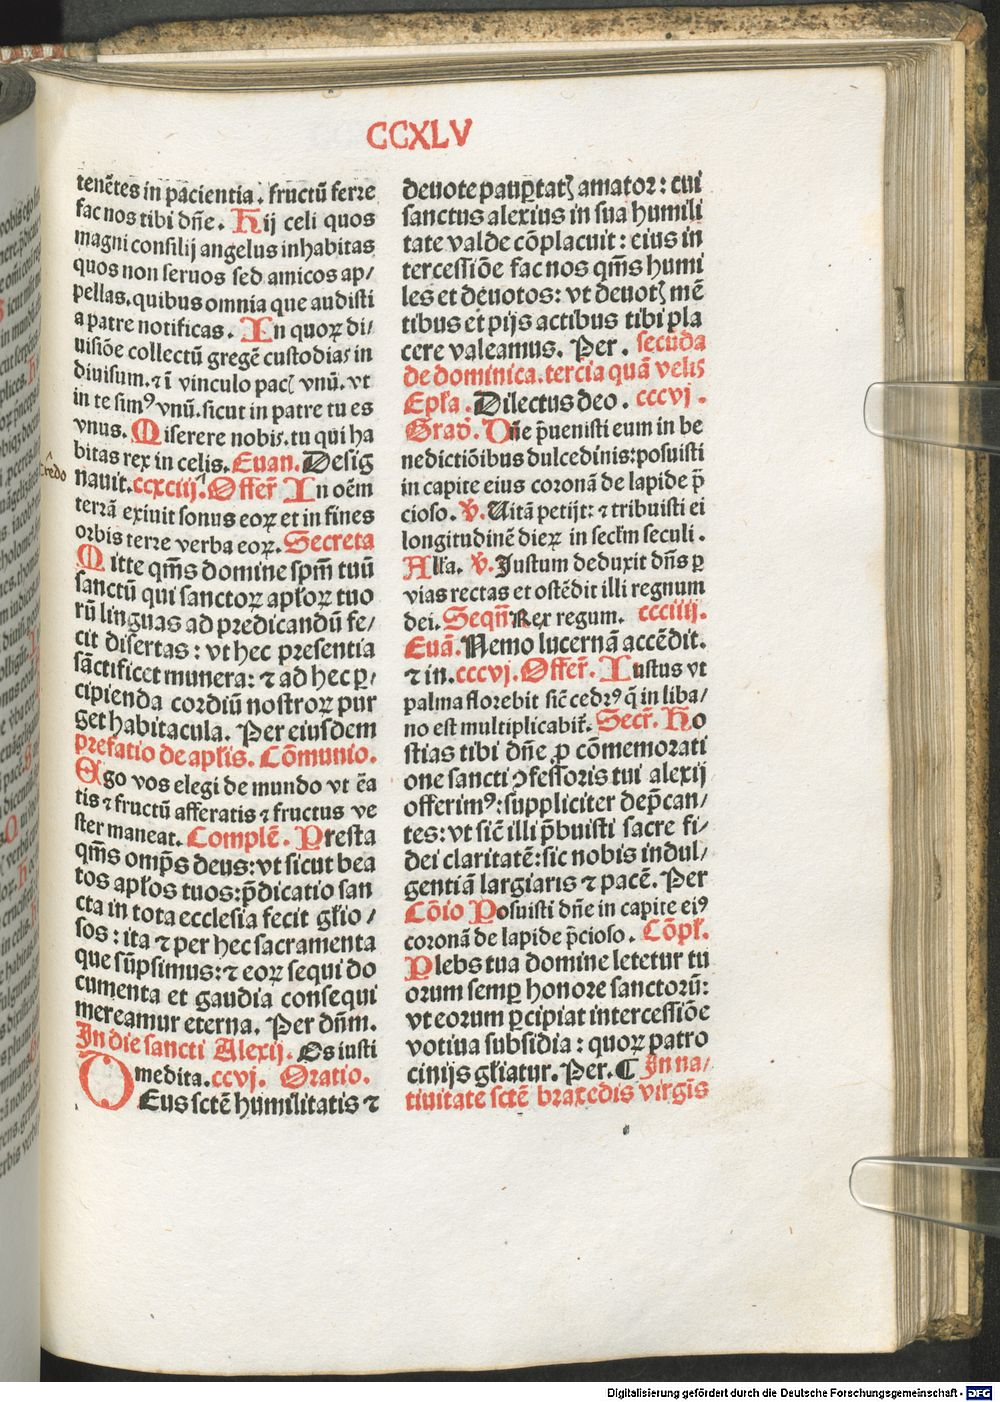 CCXLV
tenētes in pacientia. fructū ferre
fac nos tibi dn̄e. Hij celi quos
magni consilij angelus inhabitas
quos non seruos sed amicos ap/
pellas. quibus omnia que audisti
a patre notificas. In quoꝝ di/
uisiōe collectū gregē custodias in
diuisum. ⁊ ī vinculo pacꝭ vnū. vt
in te simꝰ vnū. sicut in patre tu es
vnus. Miserere nobis. tu qui ha
bitas rex in celis. Euan. Desig
Credo
nauit. ccxciij. Offer̄ In oēm
terrā exiuit sonus eoꝝ et in fines
orbis terre verba eoꝝ. Secreta
Mitte qm̄s domine spm̄ tuū
sanctū qui sanctoꝝ apl̄oꝝ tuo
rū linguas ad predicandū fe/
cit disertas: vt hec presentia
sāctificet munera: ⁊ ad hec ꝑ/
cipienda cordiū nostroꝝ pur
get habitacula. Per eiusdem
prefatio de apl̄is. Cōmunio.
Ego vos elegi de mundo vt ēa
tis ⁊ fructū afferatis ⁊ fructus ve
ster maneat. Complē. Presta
qm̄s omp̄s deus: vt sicut bea
tos apl̄os tuos: p̄dicatio san
cta in tota ecclesia fecit gl̄io/
sos: ita ⁊ per hec sacramenta
que sūpsimus: ⁊ eoꝝ sequi do
cumenta et gaudia consequi
mereamur eterna. Per dn̄m.
In die sancti Alexij. Os iusti
medita. ccvj. Oratio.
DEus sctē humilitatis ⁊
deuote pauꝑtatꝭ amator: cui
sanctus alexius in sua humili
tate valde cōplacuit: eius in
tercessiōe fac nos qm̄s humi
les et deuotos: vt deuotꝭ mē
tibus et pijs actibus tibi pla
cere valeamus. Per. secūda
de dominica. tercia quā velis
Epl̄a. Dilectus deo. cccvj.
Grad̄. Dn̄e p̄uenisti eum in be
nedictiōibus dulcedinis: posuisti
in capite eius coronā de lapide p̄
cioso. v̄. Uitā petijt: ⁊ tribuisti ei
longitudinē dieꝝ in secl̄m seculi.
All̄a. v̄. Justum deduxit dn̄s ꝑ
vias rectas et ostēdit illi regnum
dei. Seqn̄ Rex regum. ccciiij.
Euā. Nemo lucernā accēdit.
⁊ in. cccvj. Offer̄. Iustus vt
palma florebit sic̄ cedrꝰ q̄ in liba/
no est multiplicabit̄. Secr̄. Ho
stias tibi dn̄e ꝓ cōmemorati
one sancti ꝯfessoris tui alexij
offerimꝰ: suppliciter dep̄can/
tes: vt sic̄ illi p̄buisti sacre fi/
dei claritatē: sic nobis indul/
gentiā largiaris ⁊ pacē. Per
Cōio Posuisti dn̄e in capite eiꝰ
coronā de lapide p̄cioso. Cōpl̄.
Plebs tua domine letetur tu
orum semꝑ honore sanctorū:
vt eorum ꝑcipiat intercessiōe
votiua subsidia: quoꝝ patro
cinijs gl̄iatur. Per. ¶ In na/
tiuitate sctē braxedis virgīs
Digitalisierung gefördert durch die Deutsche Forschungsgemeinschaft - DFG